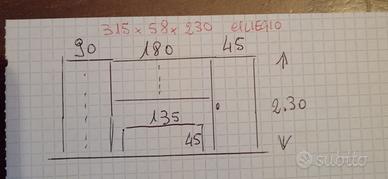 315 x 58 x 230 CILIEGIO
90 180 45
2.30
135
45
subito